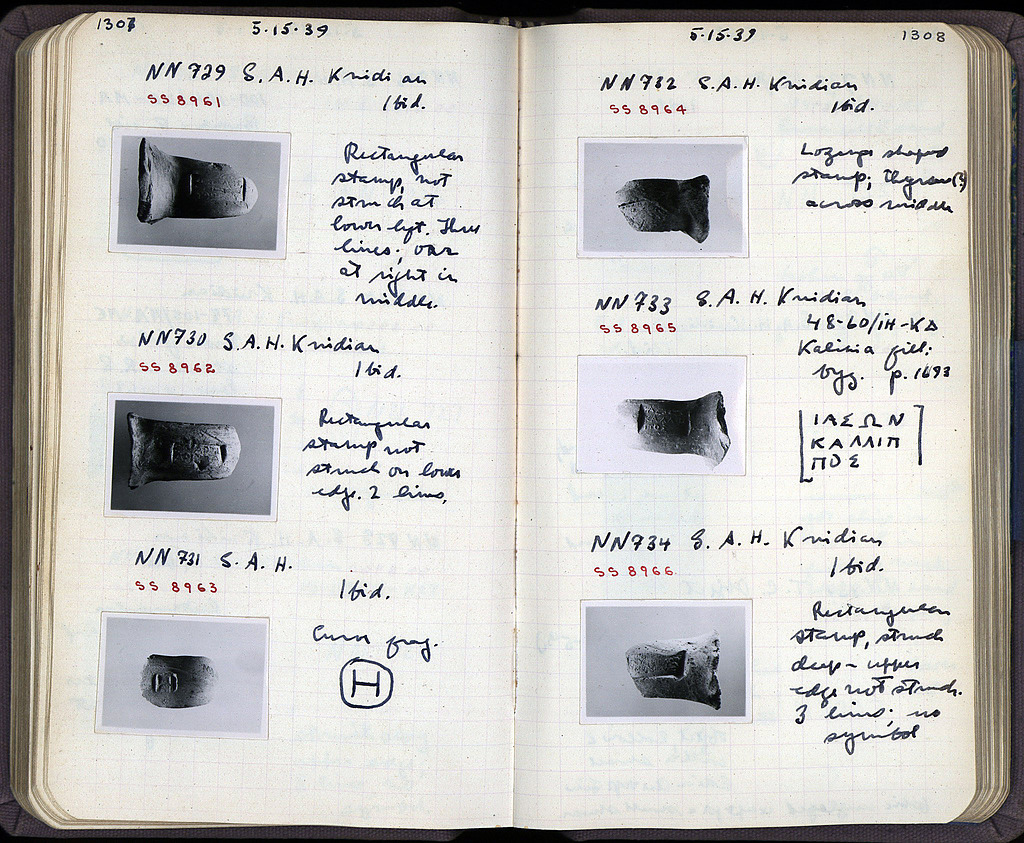 1307
5.15.39
NN729 S.A.H. Knidian
SS 8961
Ibid.
Rectangular
stamp, not
struck at
lower left. Three
lines; one
at right in
middle.
NN730 S.A.H. Knidian
SS 8962
Ibid.
Rectangular
stamp not
struck on lower
edge. 2 lines.
NN731 S.A.H.
SS 8963
Ibid.
frag.
H
5.15.39
1308
NN732 S.A.H. Knidian
SS 8964
Ibid.
Lozenge shaped
stamp; thyrsus(?)
across middle
NN733 S.A.H. Knidian
SS 8965
48-60/ΙΗ-ΚΔ
fill;
byz. p. 1693
ΙΑΣΩΝ
ΚΑΛΛΙΠ
ΠΟΣ
NN734 S.A.H. Knidian
SS 8966
Ibid.
Rectangular
stamp, struck
deep - upper
edge not struck.
3 lines; no
symbol